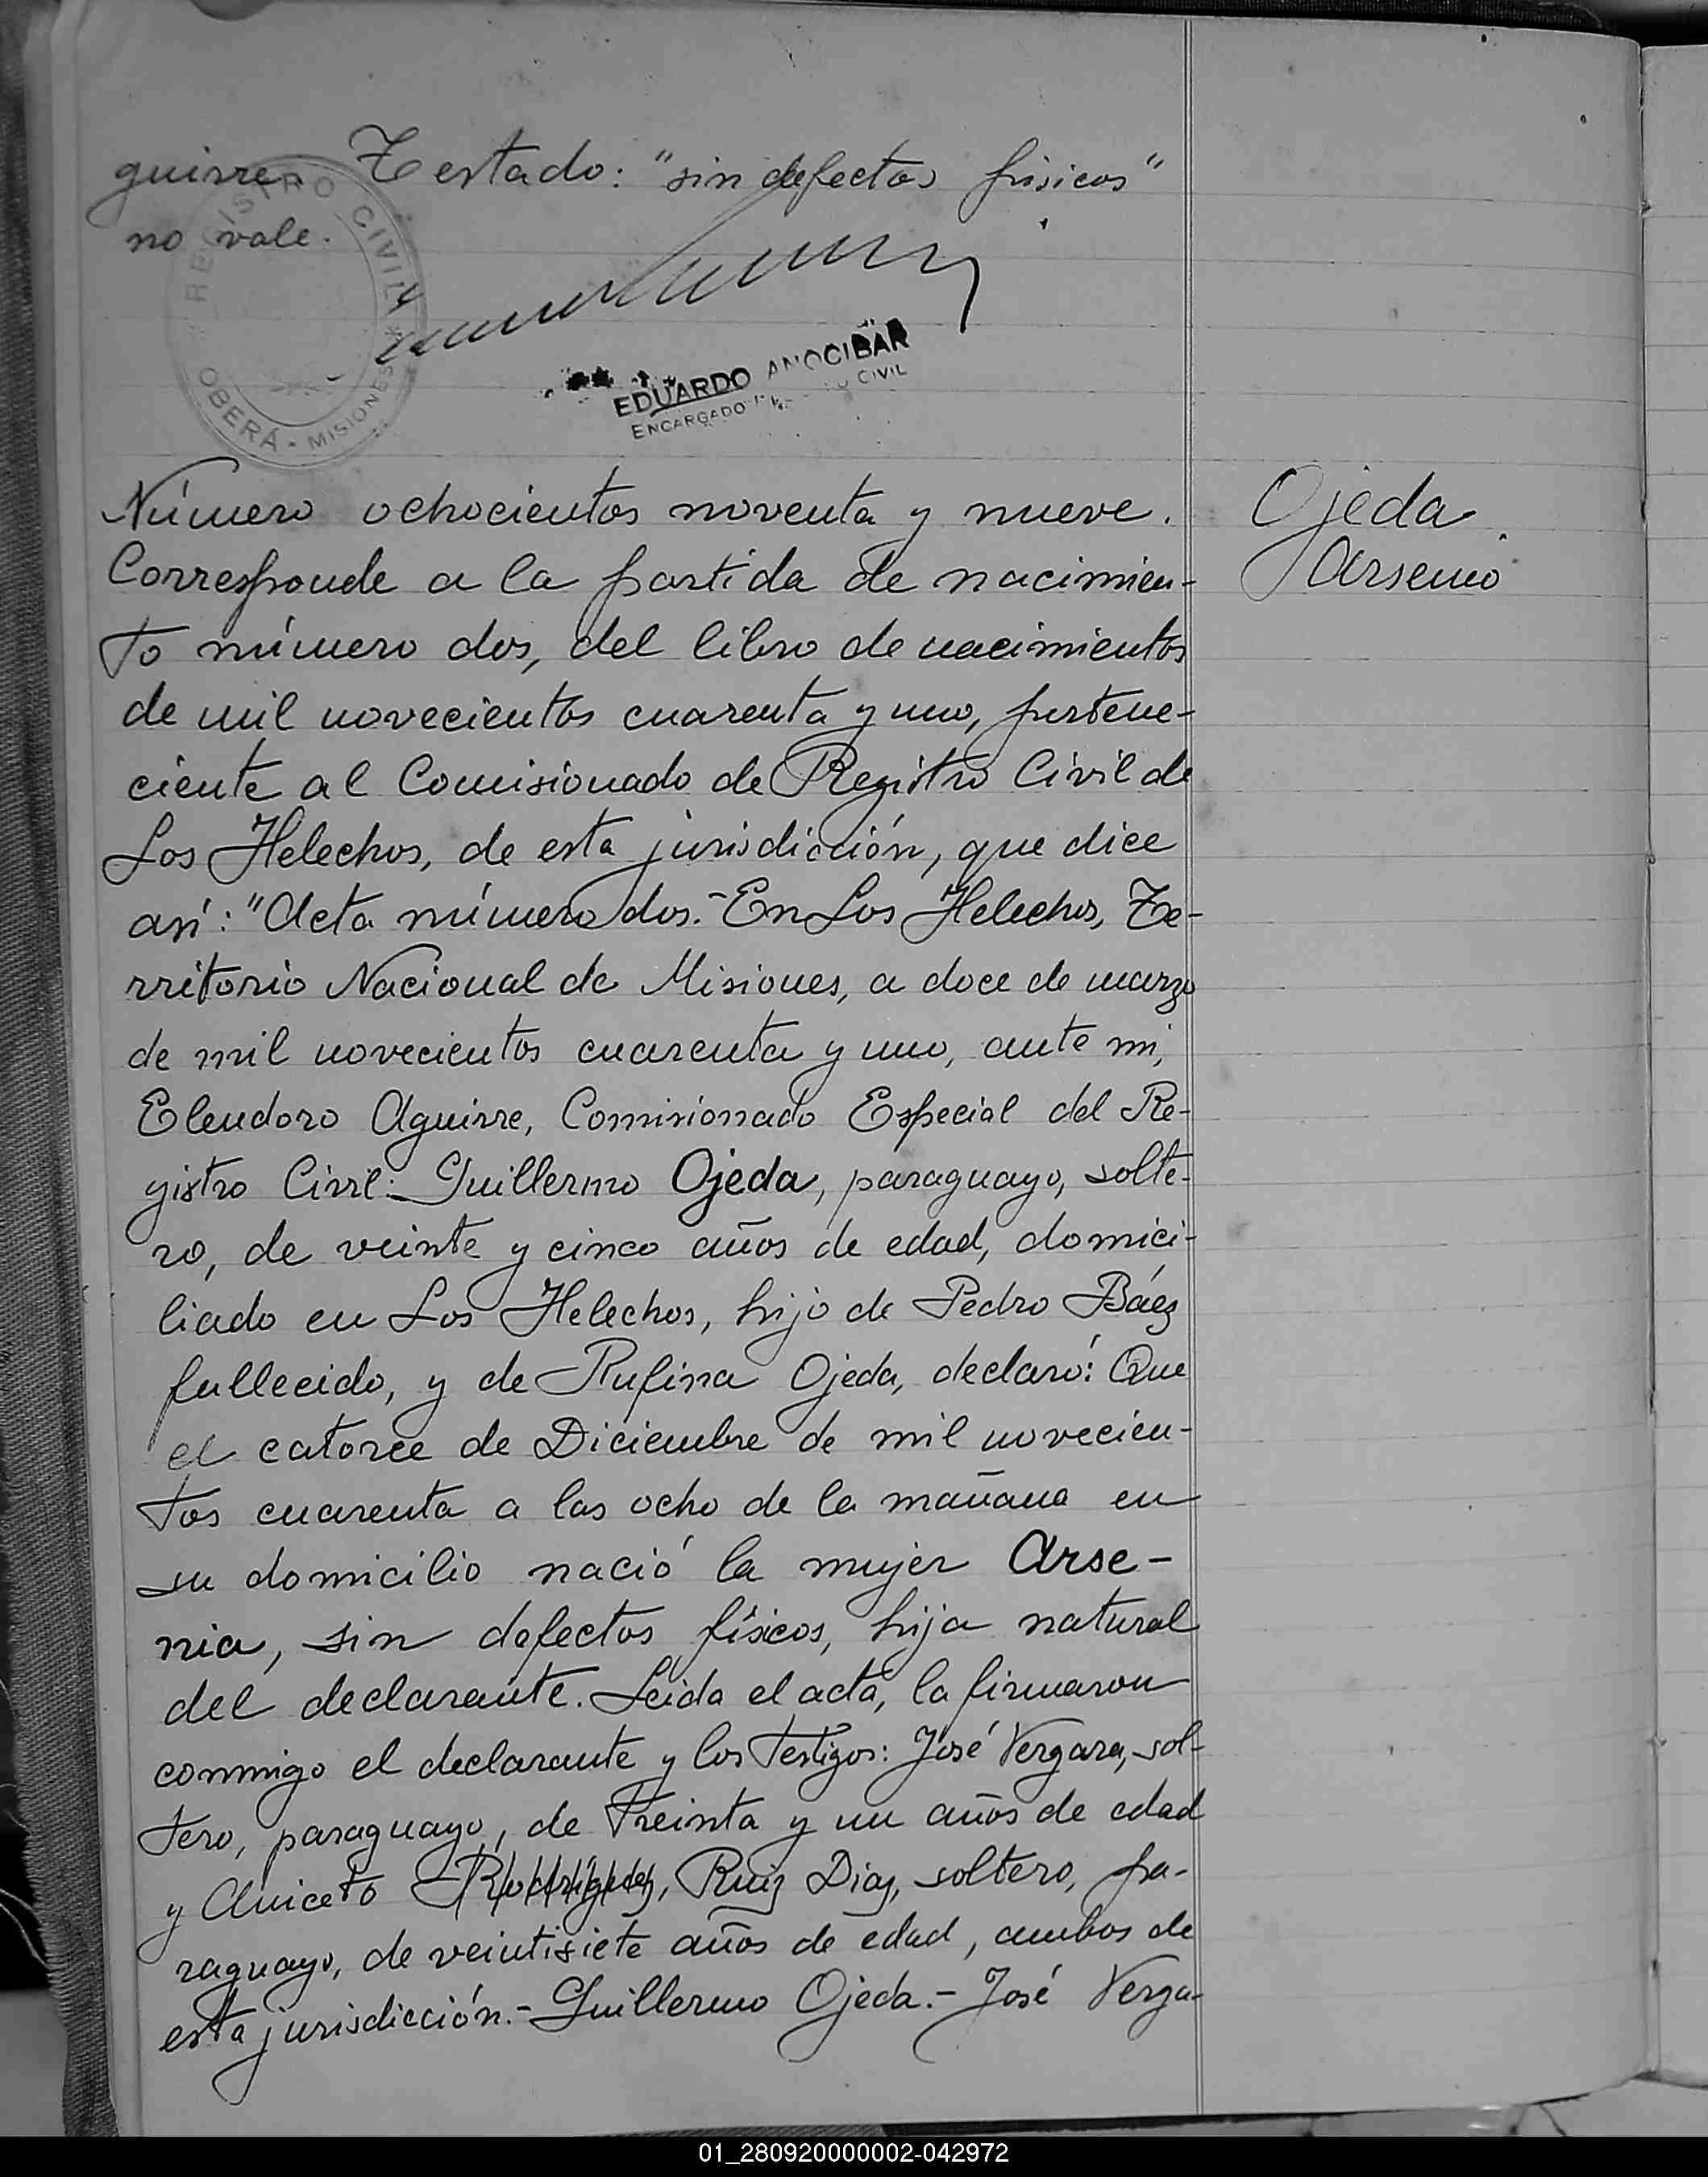 guirre. Testado: "sin defectos físicos"
no vale.
REGISTRO CIVIL
OBERÁ - MISIONES
EDUARDO ANOCIBAR
ENCARGADO CIVIL
Número ochocientos noventa y nueve.
Ojeda
Corresponde a la partida de nacimien-
Arsenio
to número dos, del libro de nacimientos
de mil novecientos cuarenta y uno, pertene-
ciente al Comisionado de Registro Civil de
Los Helechos, de esta jurisdicción, que dice
así: "Acta número dos.- En Los Helechos, Te-
rritorio Nacional de Misiones, a doce de marzo
de mil novecientos cuarenta y uno, ante mi,
Eleudoro Aguirre, Comisionado Especial del Re-
gistro Civil: Guillermo Ojeda, paraguayo, solte-
ro, de veinte y cinco años de edad, domici-
liado en Los Helechos, hijo de Pedro Báez
fallecido, y de Rufina Ojeda, declaró: Que
el catorce de Diciembre de mil novecien-
tos cuarenta a las ocho de la mañana en
su domicilio nació la mujer Arse-
nia, sin defectos físicos, hija natural
del declarante. Leida el acta, la firmaron
conmigo el declarante y los testigos: José Vergara, sol-
tero, paraguayo, de treinta y un años de edad
y Aniceto Rodríguez, Ruiz Diaz, soltero, pa-
raguayo, de veintisiete años de edad, ambos de
esta jurisdicción.- Guillermo Ojeda.- José Verga-
01_280920000002-042972